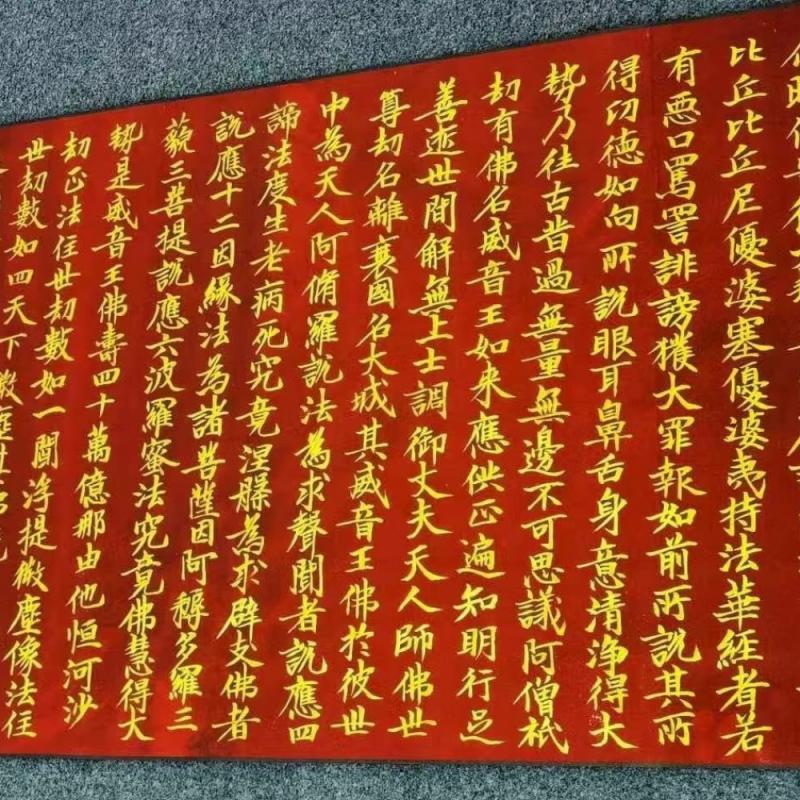 比丘比丘尼優婆塞優婆夷持法華經者若
有惡口罵詈誹謗獲大罪報如前所說其所
得功德如向所說眼耳鼻舌身意清淨得大
勢乃往古昔過無量無邊不可思議阿僧祇
劫有佛名威音王如來應供正遍知明行足
善逝世間解無上士調御丈夫天人師佛世
尊劫名離衰國名大城其威音王佛於彼世
中為天人阿脩羅說法為求聲聞者說應四
諦法度生老病死究竟涅槃為求辟支佛者
說應十二因緣法為諸菩薩因阿耨多羅三
藐三菩提說應六波羅蜜法究竟佛慧得大
勢是威音王佛壽四十萬億那由他恒河沙
劫正法住世劫數如一閻浮提微塵像法住
世劫數如四天下微塵